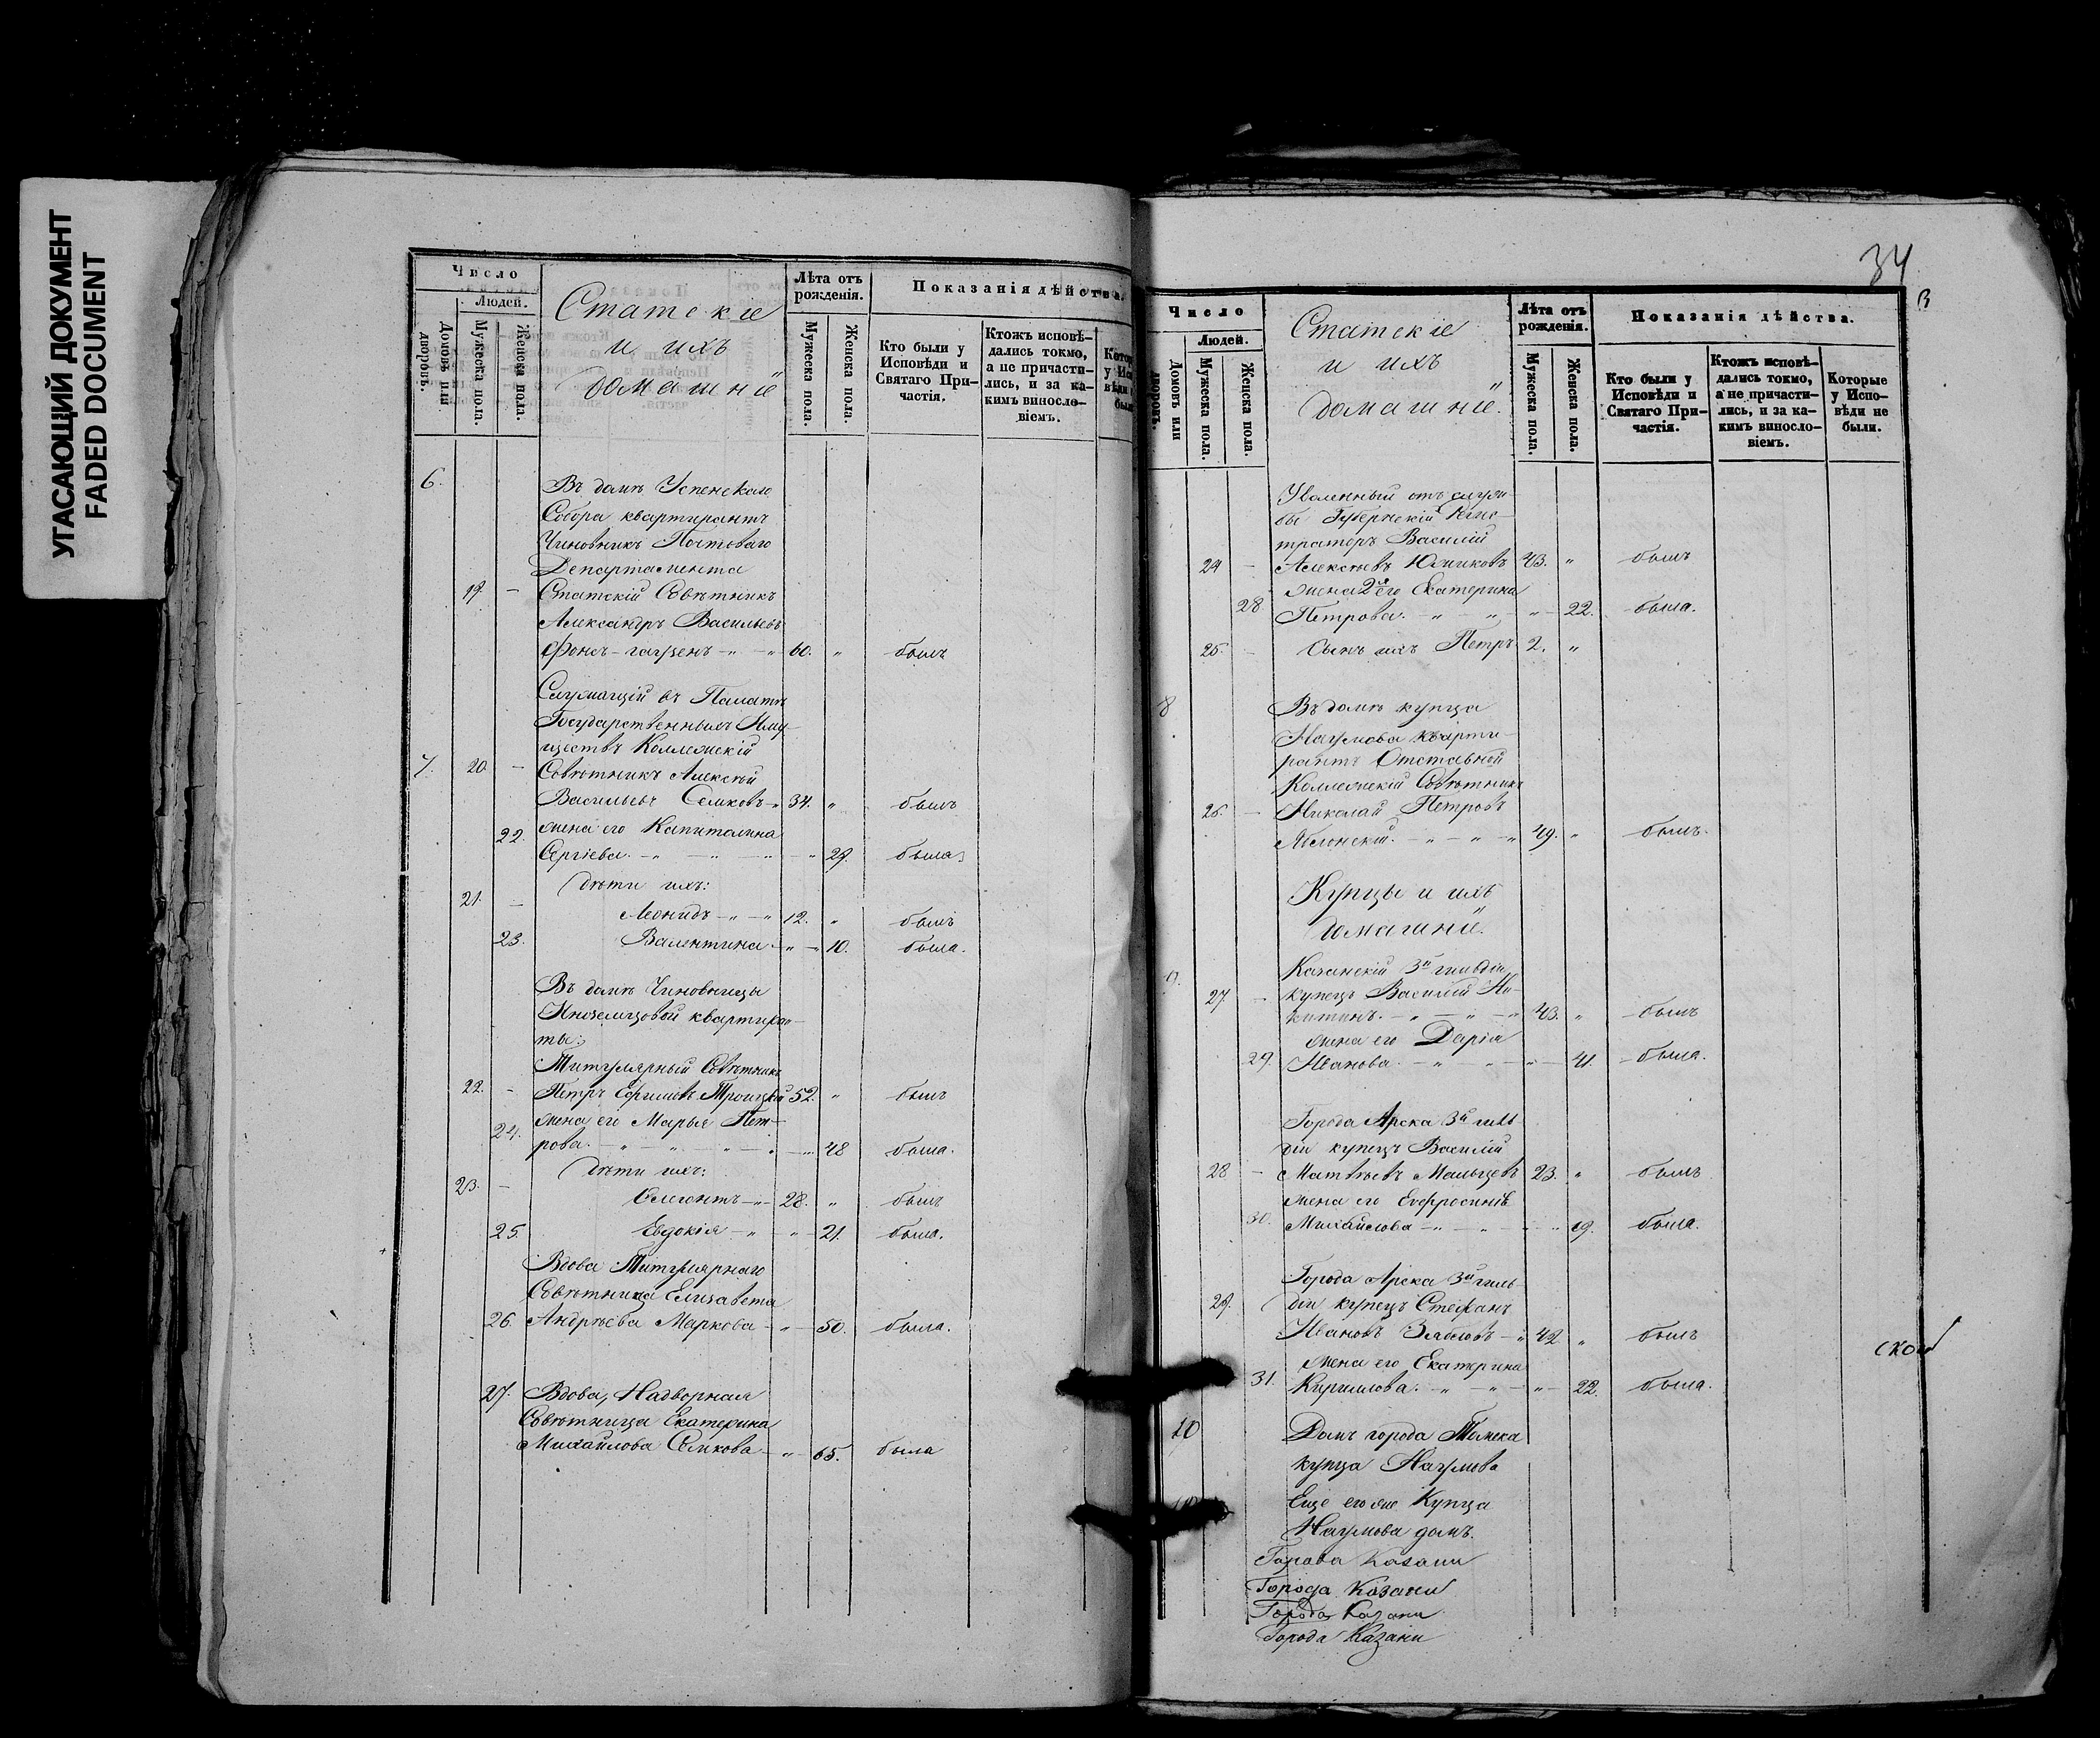 УГАСАЮЩИЙ ДОКУМЕНТ
FADED DOCUMENT
Число
Людей.
Домовъ или дворовъ.
Мужеска пола.
Женска пола.
Статскіе
и ихъ
домашніе
Лѣта отъ
рожденія.
Мужеска пола.
Женска пола.
Показанія дѣйства.
Кто были у
Исповѣди и
Святаго При-
частія.
Ктожъ исповѣ-
дались токмо,
а не причасти-
лись, и за ка-
кимъ виносло-
віемъ.
6. Въ домѣ Успенскаго
Собора квартирантъ
Чиновникъ Почтоваго
Департамента
19. – Статскій Совѣтникъ
Александръ Васильевъ
60. " былъ
Служащій въ Палатѣ
Государственныхъ Иму-
ществъ Коллежскій
7. 20. – Совѣтникъ Алексѣй
Васильевъ Семковъ 34. " былъ
22. жена его Капиталина
Сергіева. " 29. была
дѣти ихъ:
21. – Леонидъ 12. " былъ
23. Валентина " 10. была.
Въ домѣ Чиновницы
Иноземцовой квартиран-
ты:
Титулярный Совѣтникъ
22. – Петръ Ефимовъ Троицкій 52. " былъ
24. жена его Марья Пет-
рова. " 48 была.
дѣти ихъ:
23. – 28. " былъ
25. Евдокія " 21. была.
Вдова Титулярнаго
Совѣтника Елизавета
26. Андрѣева Маркова " 50. была.
27. Вдова, Надворная
Совѣтница Екатерина
Михайлова Семкова " 65. была
34
В
Число
Людей.
Домовъ или дворовъ.
Мужеска пола.
Женска пола.
Статскіе
и ихъ
домашніе.
Лѣта отъ
рожденія.
Мужеска пола.
Женска пола.
Показанія дѣйства.
Кто были у
Исповѣди и
Святаго При-
частія.
Ктожъ исповѣ-
дались токмо,
а не причасти-
лись, и за ка-
кимъ виносло-
віемъ.
Которые
у Испо-
вѣди не
были.
Уволенный отъ служ-
бы Губернскій Регис-
траторъ Василій
24 – Алексѣевъ 43. " былъ
28 жена 2я его Екатерина
Петрова. " 22. была.
25. – Сынъ ихъ Петръ 2. "
8 Въ домѣ купца
Наумова кварти-
рантъ Отставной
Коллежскій Совѣтникъ
26. – Николай Петровъ
Яблонскій. 49. " былъ.
Купцы и ихъ
домашніе.
9. Казанскій 3й гильдіи
27 – купецъ Василій Ни-
китинъ. 43. " былъ
жена его Дарія
29. Иванова. " 41. была.
Города Арска 3й гиль
діи купецъ Василій
28 – Матвѣевъ Мальцевъ 23. " былъ
жена его Евфросинія
30. Михайлова " 19. была.
Города Арска 3й гиль
29. діи купецъ Стефанъ
Ивановъ 42 " былъ
жена его Екатерина
31. Кириллова. " 22. была.
10 Домъ города Томска
купца Наумова
Еще его же Купца
Наумова домъ.
Города Казани
Города Казани
Города Казани
Города Казани